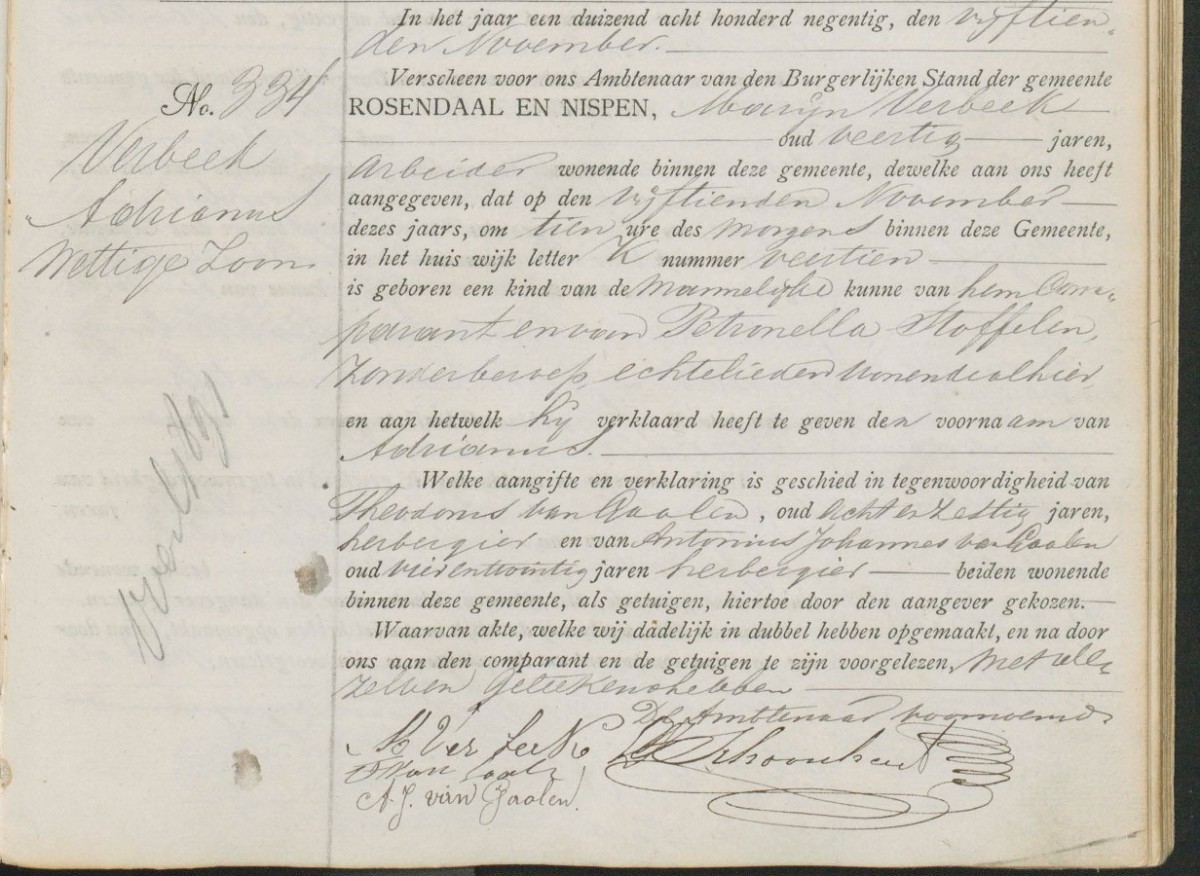 In het jaar een duizend acht honderd negentig, den vyftien
den November.
No. 334
Verbeek
Adrianus
Wettige Zoon
Verscheen voor ons Ambtenaar van den Burgerlijken Stand der gemeente
ROSENDAAL EN NISPEN, Marijn Verbeek
oud veertig jaren,
arbeider wonende binnen deze gemeente, dewelke aan ons heeft
aangegeven, dat op den vyftienden November
dezes jaars, om tien ure des morgens binnen deze Gemeente,
in het huis wijk letter K nummer veertien
is geboren een kind van de mannelyke kunne van hem Com„
parant en van Petronella Stoffelen,
zonder beroep, echtelieden wonende alhier
en aan hetwelk hij verklaard heeft te geven den voornaam van
Adrianus.
Welke aangifte en verklaring is geschied in tegenwoordigheid van
Theodorus van Gaalen, oud acht en zestig jaren,
herbergier en van Antonius Johannes van Gaalen
oud vier en twintig jaren herbergier beiden wonende
binnen deze gemeente, als getuigen, hiertoe door den aangever gekozen.
Waarvan akte, welke wij dadelijk in dubbel hebben opgemaakt, en na door
ons aan den comparant en de getuigen te zijn voorgelezen, met
zelven geteekend hebben
De Ambtenaar voornoemd
M Verbeek
A. J. van Gaalen.